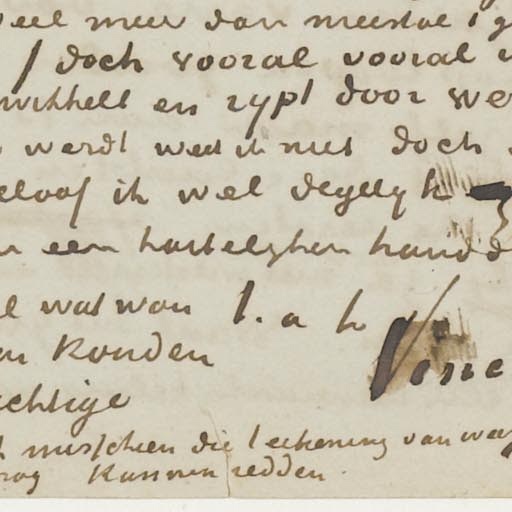 veel meer dan meestal 't g
doch vooral vooral
wikkelt en rypt door we
werdt weet ik niet doch
eloof ik wel degelyk
n een hartelyken handd
l wat won t. à t. Vinc
en konden
achtige
misschien die teekening van wee
nog kunnen redden.